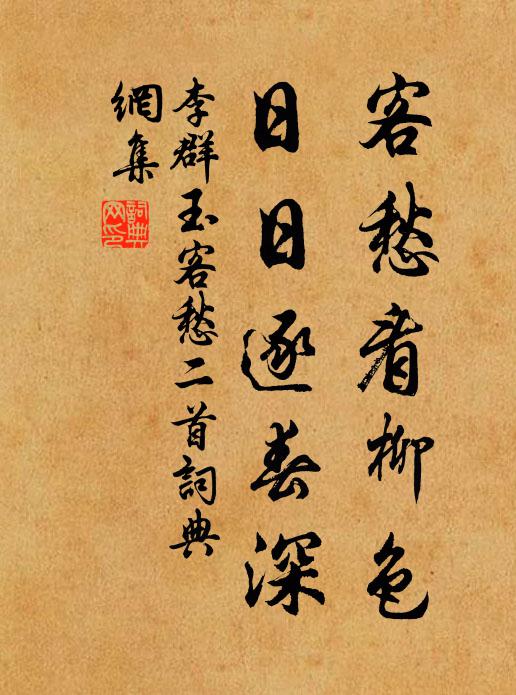 客愁看柳色
日日逐春深
李群玉客愁二首詞典
網集
詞典
网印